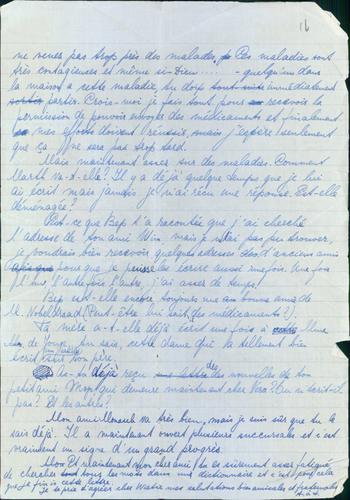 16
me venez pas trop près des malades. Ces maladies sont
très contagieuses et même si Dien ..... - quelqu'un dans
la maison a cette maladie, tu dois tout suite immédiatement
partir. Crois-moi je fais tout pour recevoir la
permission de pouvoir envoyer des médicaments et finalement
mes efforts doivent réussir, mais j'espère seulement
que ça ne sera pas trop tard.
Mais maintenant assez sur des maladies. Comment
va-t-elle? Il y a déjà quelque temps que je lui
ai écrit mais jamais je n'ai reçu une réponse. Est-elle
déménagée?
Est-ce que Bep t'a racontée que j'ai cherché
l'adresse de ton ami Wim, mais je n'ai pas pu trouver,
je voudrais bien recevoir quelques adresses d'anciens amis
pour que je puisse les écrire aussi une fois. Une fois
l'un, l'autre fois l'autre, j'ai assez de temps!
Bep est-elle encore toujours une bonne amie de
M. (Peut-être lui fait des médicaments?).
Ta mère a-t-elle déjà écrit une fois à Mme
de Jong. Tu sais, cette dame qui a tellement bien
écrit sur ton père.
As-tu déjà reçu des nouvelles de ton
petit ami qui demeure maintenant chez Vera? Ou n'écrit-il
pas? Et les autres?
Mon ami va très bien, mais je suis sûr que tu le
sais déjà. Il a maintenant ouvert plusieurs succursales et c'est
vraiment un signe d'un grand progrès.
Et maintenant mon cher ami, tu es sûrement assez fatigué
de chercher tous les mots dans une dictionnaire et c'est pour cela
que je finis cette lettre.
Je te prie d'agréer cher mes salutations bien amicales et